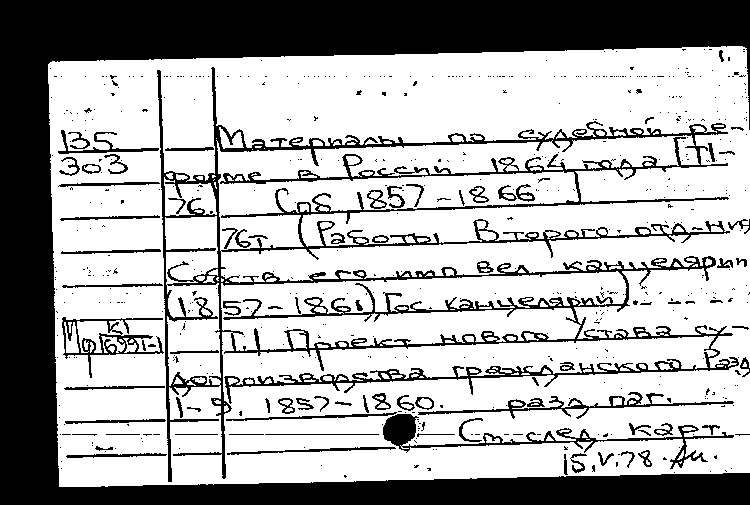 1.
135 Материалы по судебной ре-
303 форме в России 1864 года. [Т1-
76. Спб, 1857-1866]
76т. (Работы Второго отд-ния
Собств. его имп вел. канцелярии
(1857-1861) Гос. канцелярии).
К1
Т.1 Проект нового Устава су-
допроизводства гражданского. Разд
1-9. 1857-1860. разд. паг.
См. след. карт.
15.V.78.